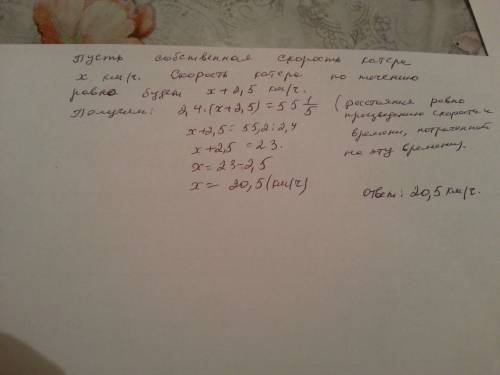 Пусть собственная скорость катера
x км/ч. Скорость катера по течению
равна будет x + 2,5 км/ч.
Получим: 2,4·(x+2,5) = 55 1/5 (расстояние равно
произведению скорости и
x+2,5 = 55,2 : 2,4 времени, потраченной
x+2,5 = 23. на эту времени).
x = 23-2,5
x = 20,5 (км/ч)
Ответ: 20,5 км/ч.